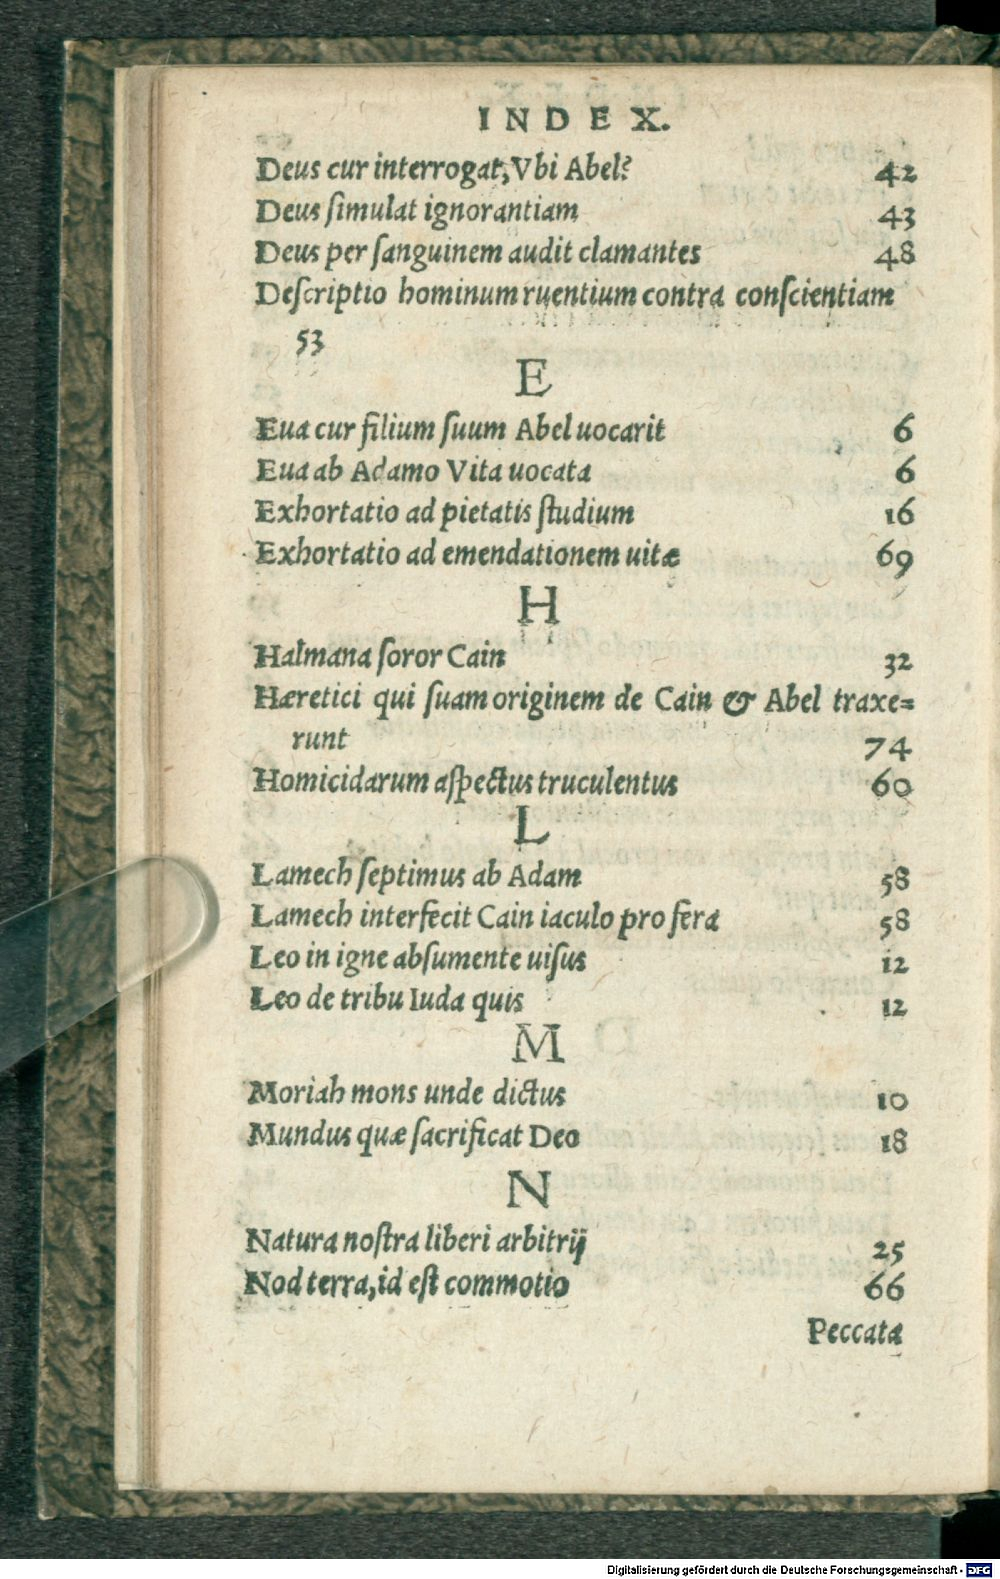 INDEX.
Deus cur interrogat, Vbi Abel? 42
Deus ſimulat ignorantiam 43
Deus per ſanguinem audit clamantes 48
Deſcriptio hominum ruentium contra conſcientiam
53
E
Eua cur filium ſuum Abel uocarit 6
Eua ab Adamo Vita uocata 6
Exhortatio ad pietatis ſtudium 16
Exhortatio ad emendationem uitæ 69
H
Halmana ſoror Cain 32
Hæretici qui ſuam originem de Cain & Abel traxe=
runt 74
Homicidarum aſpectus truculentus 60
L
Lamech ſeptimus ab Adam 58
Lamech interfecit Cain iaculo pro fera 58
Leo in igne abſumente uiſus 12
Leo de tribu Iuda quis 12
M
Moriah mons unde dictus 10
Mundus quæ ſacrificat Deo 18
N
Natura noſtra liberi arbitrij 25
Nod terra, id eſt commotio 66
Peccata
Digitalisierung gefördert durch die Deutsche Forschungsgemeinschaft - DFG